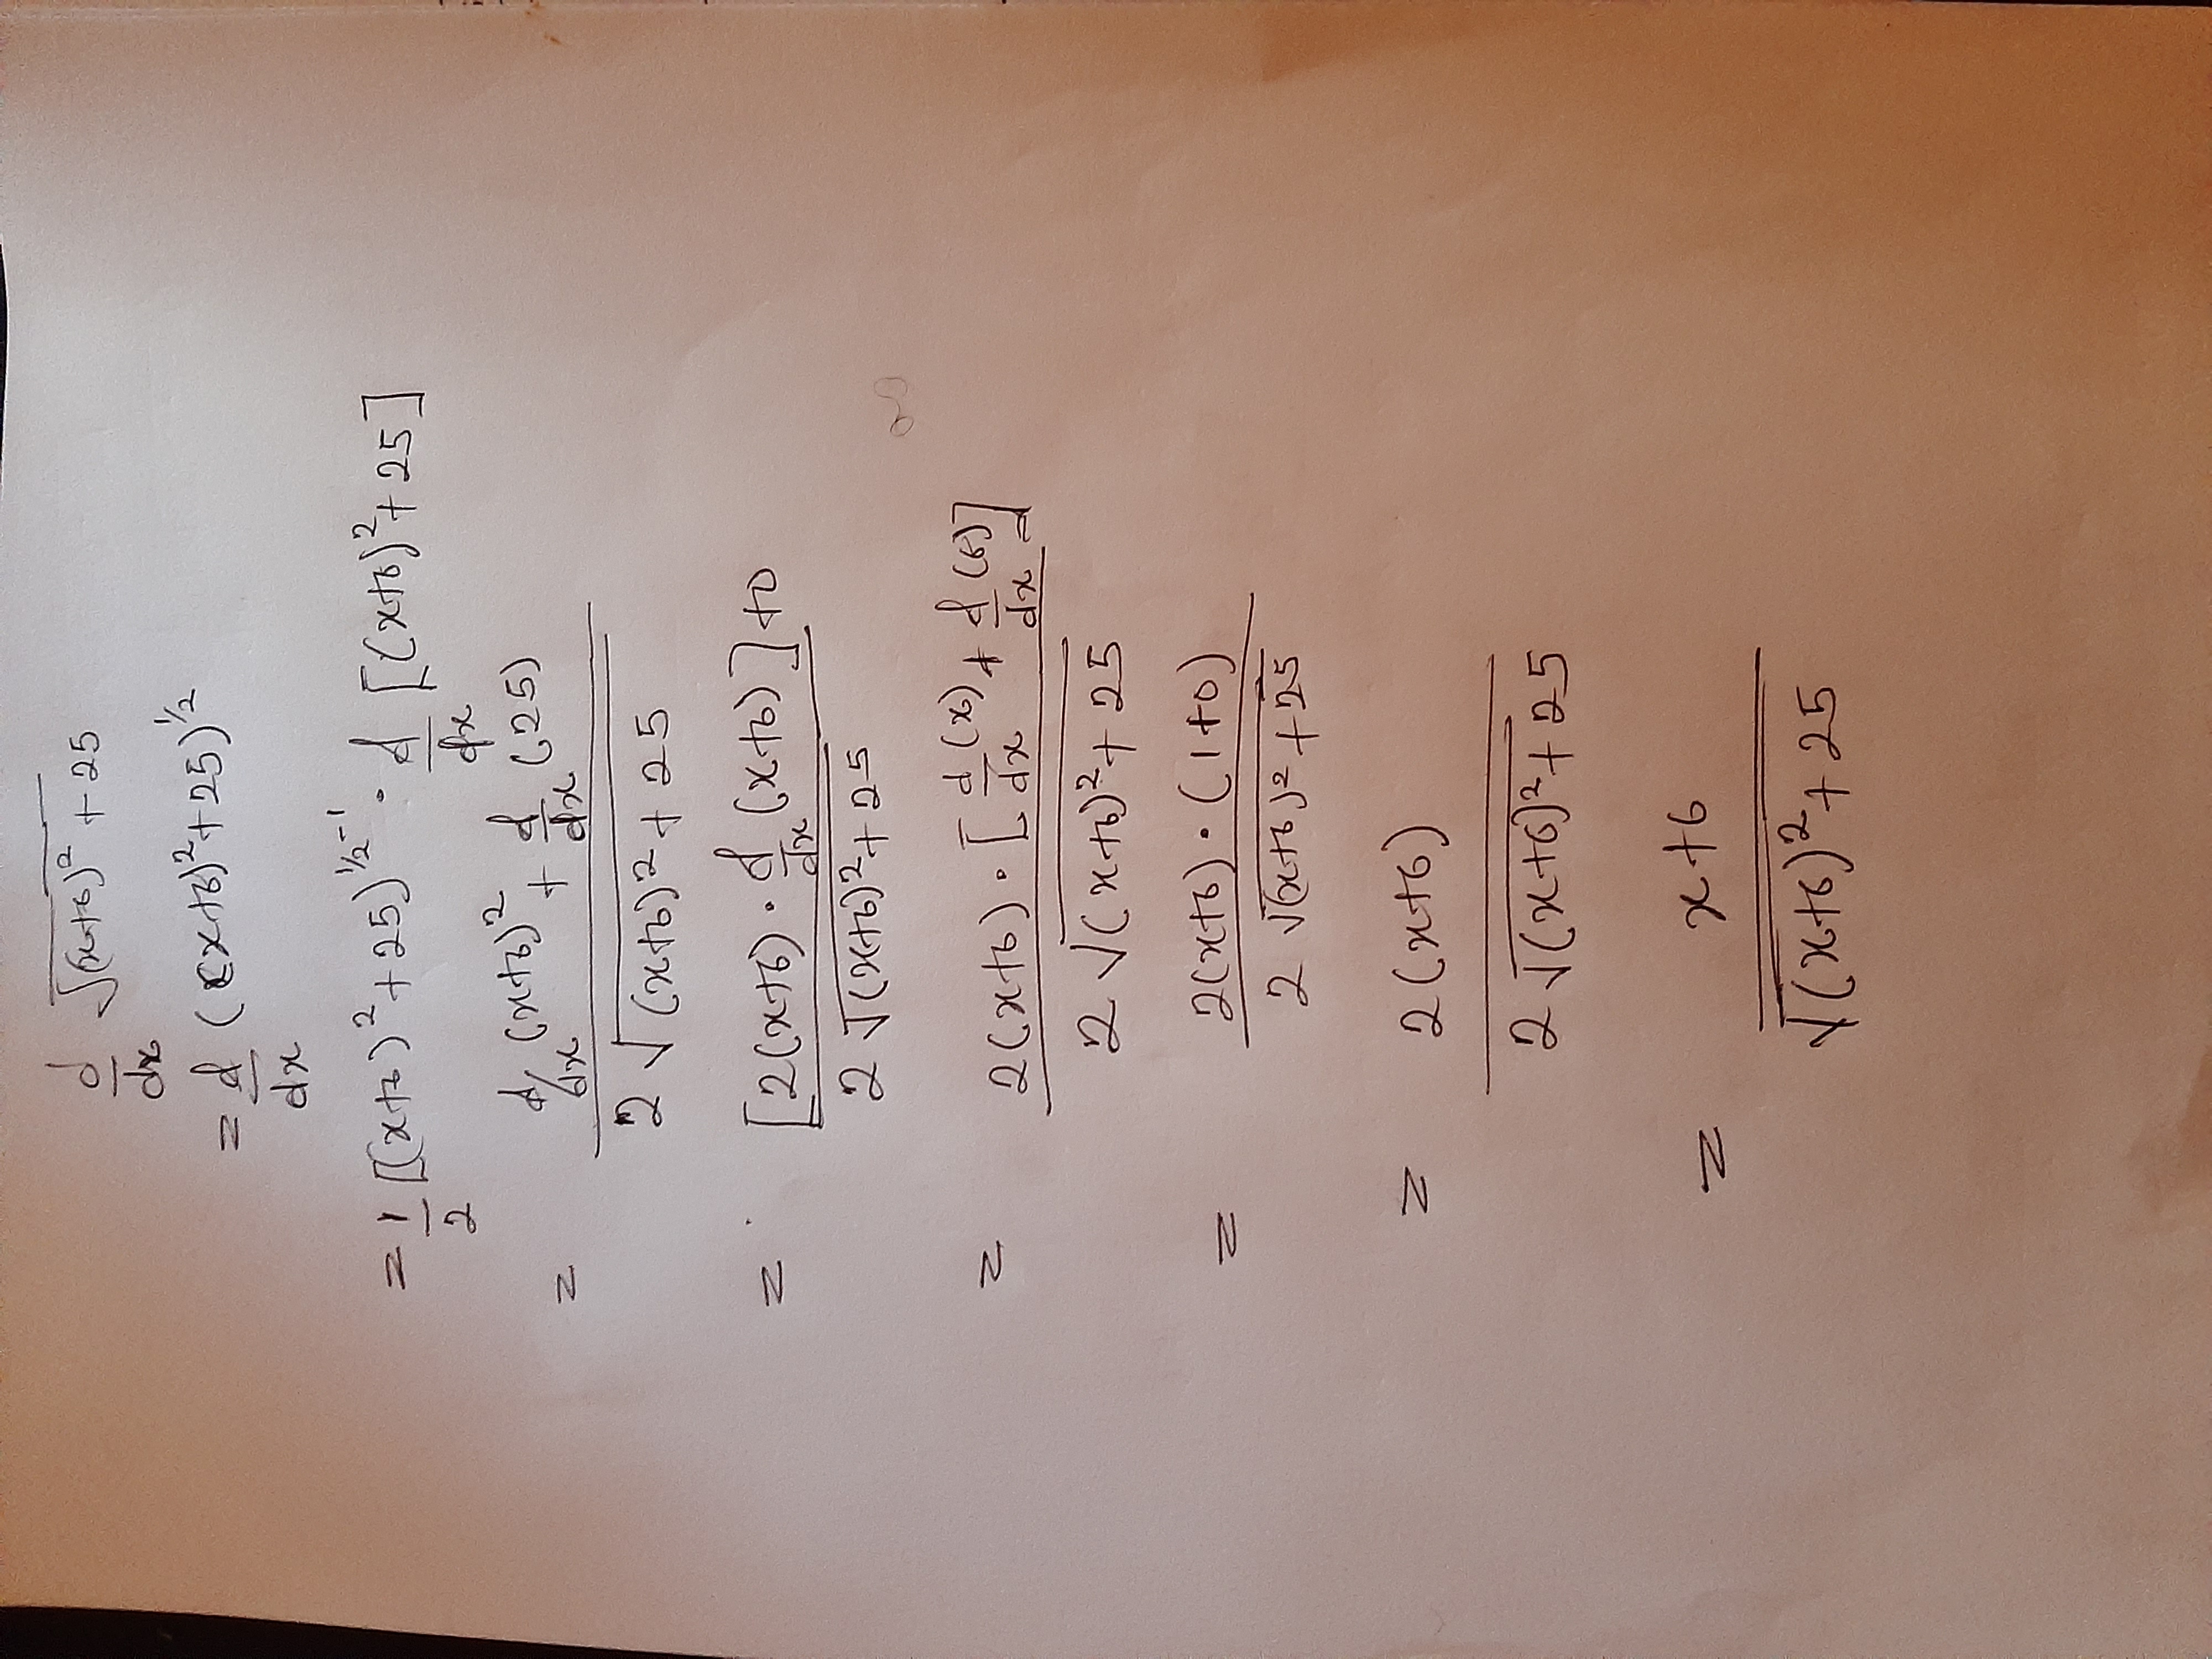 d/dx √((x+6)² + 25)
= d/dx ((x+6)² + 25)^1/2
= 1/2 [(x+6)² + 25)^1/2-1 · d/dx [(x+6)² + 25]
= (d/dx (x+6)² + d/dx (25)) / (2 √((x+6)² + 25))
= ([2(x+6) · d/dx (x+6)] + 0) / (2 √((x+6)² + 25))
= (2(x+6) · [d/dx (x) + d/dx (6)]) / (2 √((x+6)² + 25))
= (2(x+6) · (1+0)) / (2 √((x+6)² + 25))
= (2(x+6)) / (2 √((x+6)² + 25))
= (x+6) / (√((x+6)² + 25))